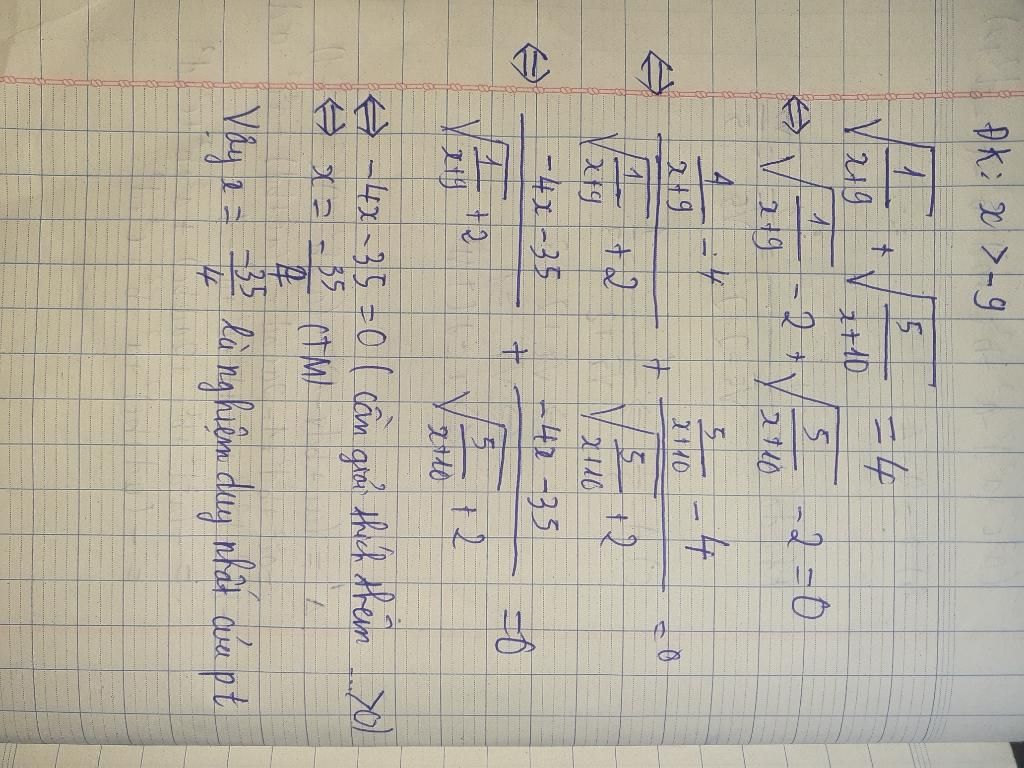 ĐK: x > -9
√(1/(x+9)) + √(5/(x+10)) = 4
⇔ √(1/(x+9)) - 2 + √(5/(x+10)) - 2 = 0
⇔ (1/(x+9) - 4)/(√(1/(x+9)) + 2) + (5/(x+10) - 4)/(√(5/(x+10)) + 2) = 0
⇔ (-4x - 35)/(√(1/(x+9)) + 2) + (-4x - 35)/(√(5/(x+10)) + 2) = 0
⇔ -4x - 35 = 0 (cần giải thích thêm ... >0)
⇔ x = -35/4 (TM)
Vậy x = -35/4 là nghiệm duy nhất của pt